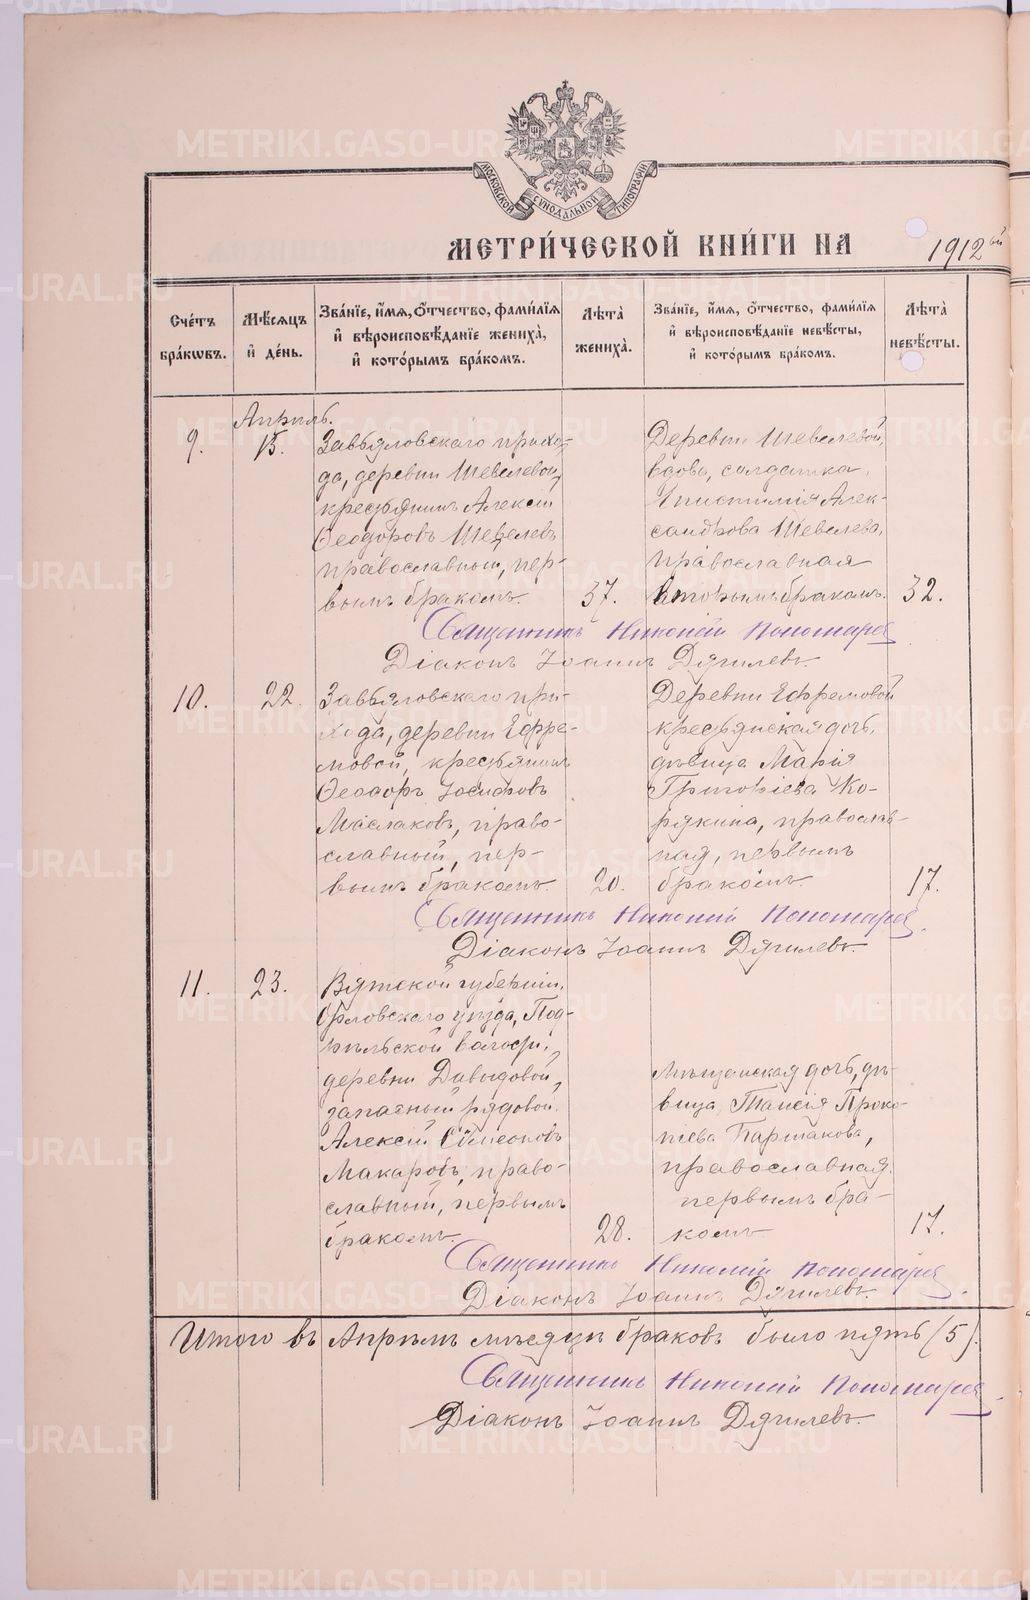 МОСКОВСКОЙ СѴНОДАЛЬНОЙ ТИПОГРАФІИ
МЕТРИ́ЧЕСКОЙ КНИ́ГИ НА 1912ый
Сче́тъ бра́кωвъ.
Мѣ́сяцъ и҆ де́нь.
Зва́нїе, и҆́мя, ѻ҆́тчество, фами́лїя и҆ вѣроисповѣ́данїе жениха̀, и҆ кото́рымъ бра́комъ.
Лѣта̀ жениха̀.
Зва́нїе, и҆́мя, ѻ҆́тчество, фами́лїя и҆ вѣроисповѣ́данїе невѣ́сты, и҆ кото́рымъ бра́комъ.
Лѣта̀ невѣ́сты.
Апрѣль.
9.
15.
Завьяловскаго прихо-
да, деревни Шевелевой,
крестьянинъ Алексій
Ѳеодоровъ Шевелевъ
православный, пер-
вымъ бракомъ.
37.
Деревни Шевелевой,
вдова, солдатка,
Алек-
сандрова Шевелева,
православная
вторымъ бракомъ.
32.
Священникъ Николай Пономарев
Діаконъ Іоаннъ Дягилевъ.
10.
22.
Завьяловскаго при-
хода, деревни Ефре-
мовой, крестьянинъ
Ѳеодоръ Іосифовъ
Маслаковъ, право-
славный, пер-
вымъ бракомъ.
20.
Деревни Ефремовой
крестьянская дочь,
дѣвица Марія
Григоріева Ко-
рякина, православ-
ная, первымъ
бракомъ.
17.
Священникъ Николай Пономарев.
Діаконъ Іоаннъ Дягилевъ.
11.
23.
Вятской губерніи,
Орловскаго уѣзда, Под-
рѣльской волости,
деревни Давыдовой,
запасный рядовой
Алексій Сѵмеоновъ
Макаровъ, право-
славный, первымъ
бракомъ.
28.
мѣщанская дочь, дѣ-
вица Таисія Проко-
піева Паршакова,
православная
первымъ бра-
комъ
17.
Священникъ Николай Пономарев.
Діаконъ Іоаннъ Дягилевъ.
Итого въ Апрѣлѣ мѣсяцѣ браковъ было пять (5).
Священникъ Николай Пономарев.
Діаконъ Іоаннъ Дягилевъ.
METRIKI.GASO-URAL.RU